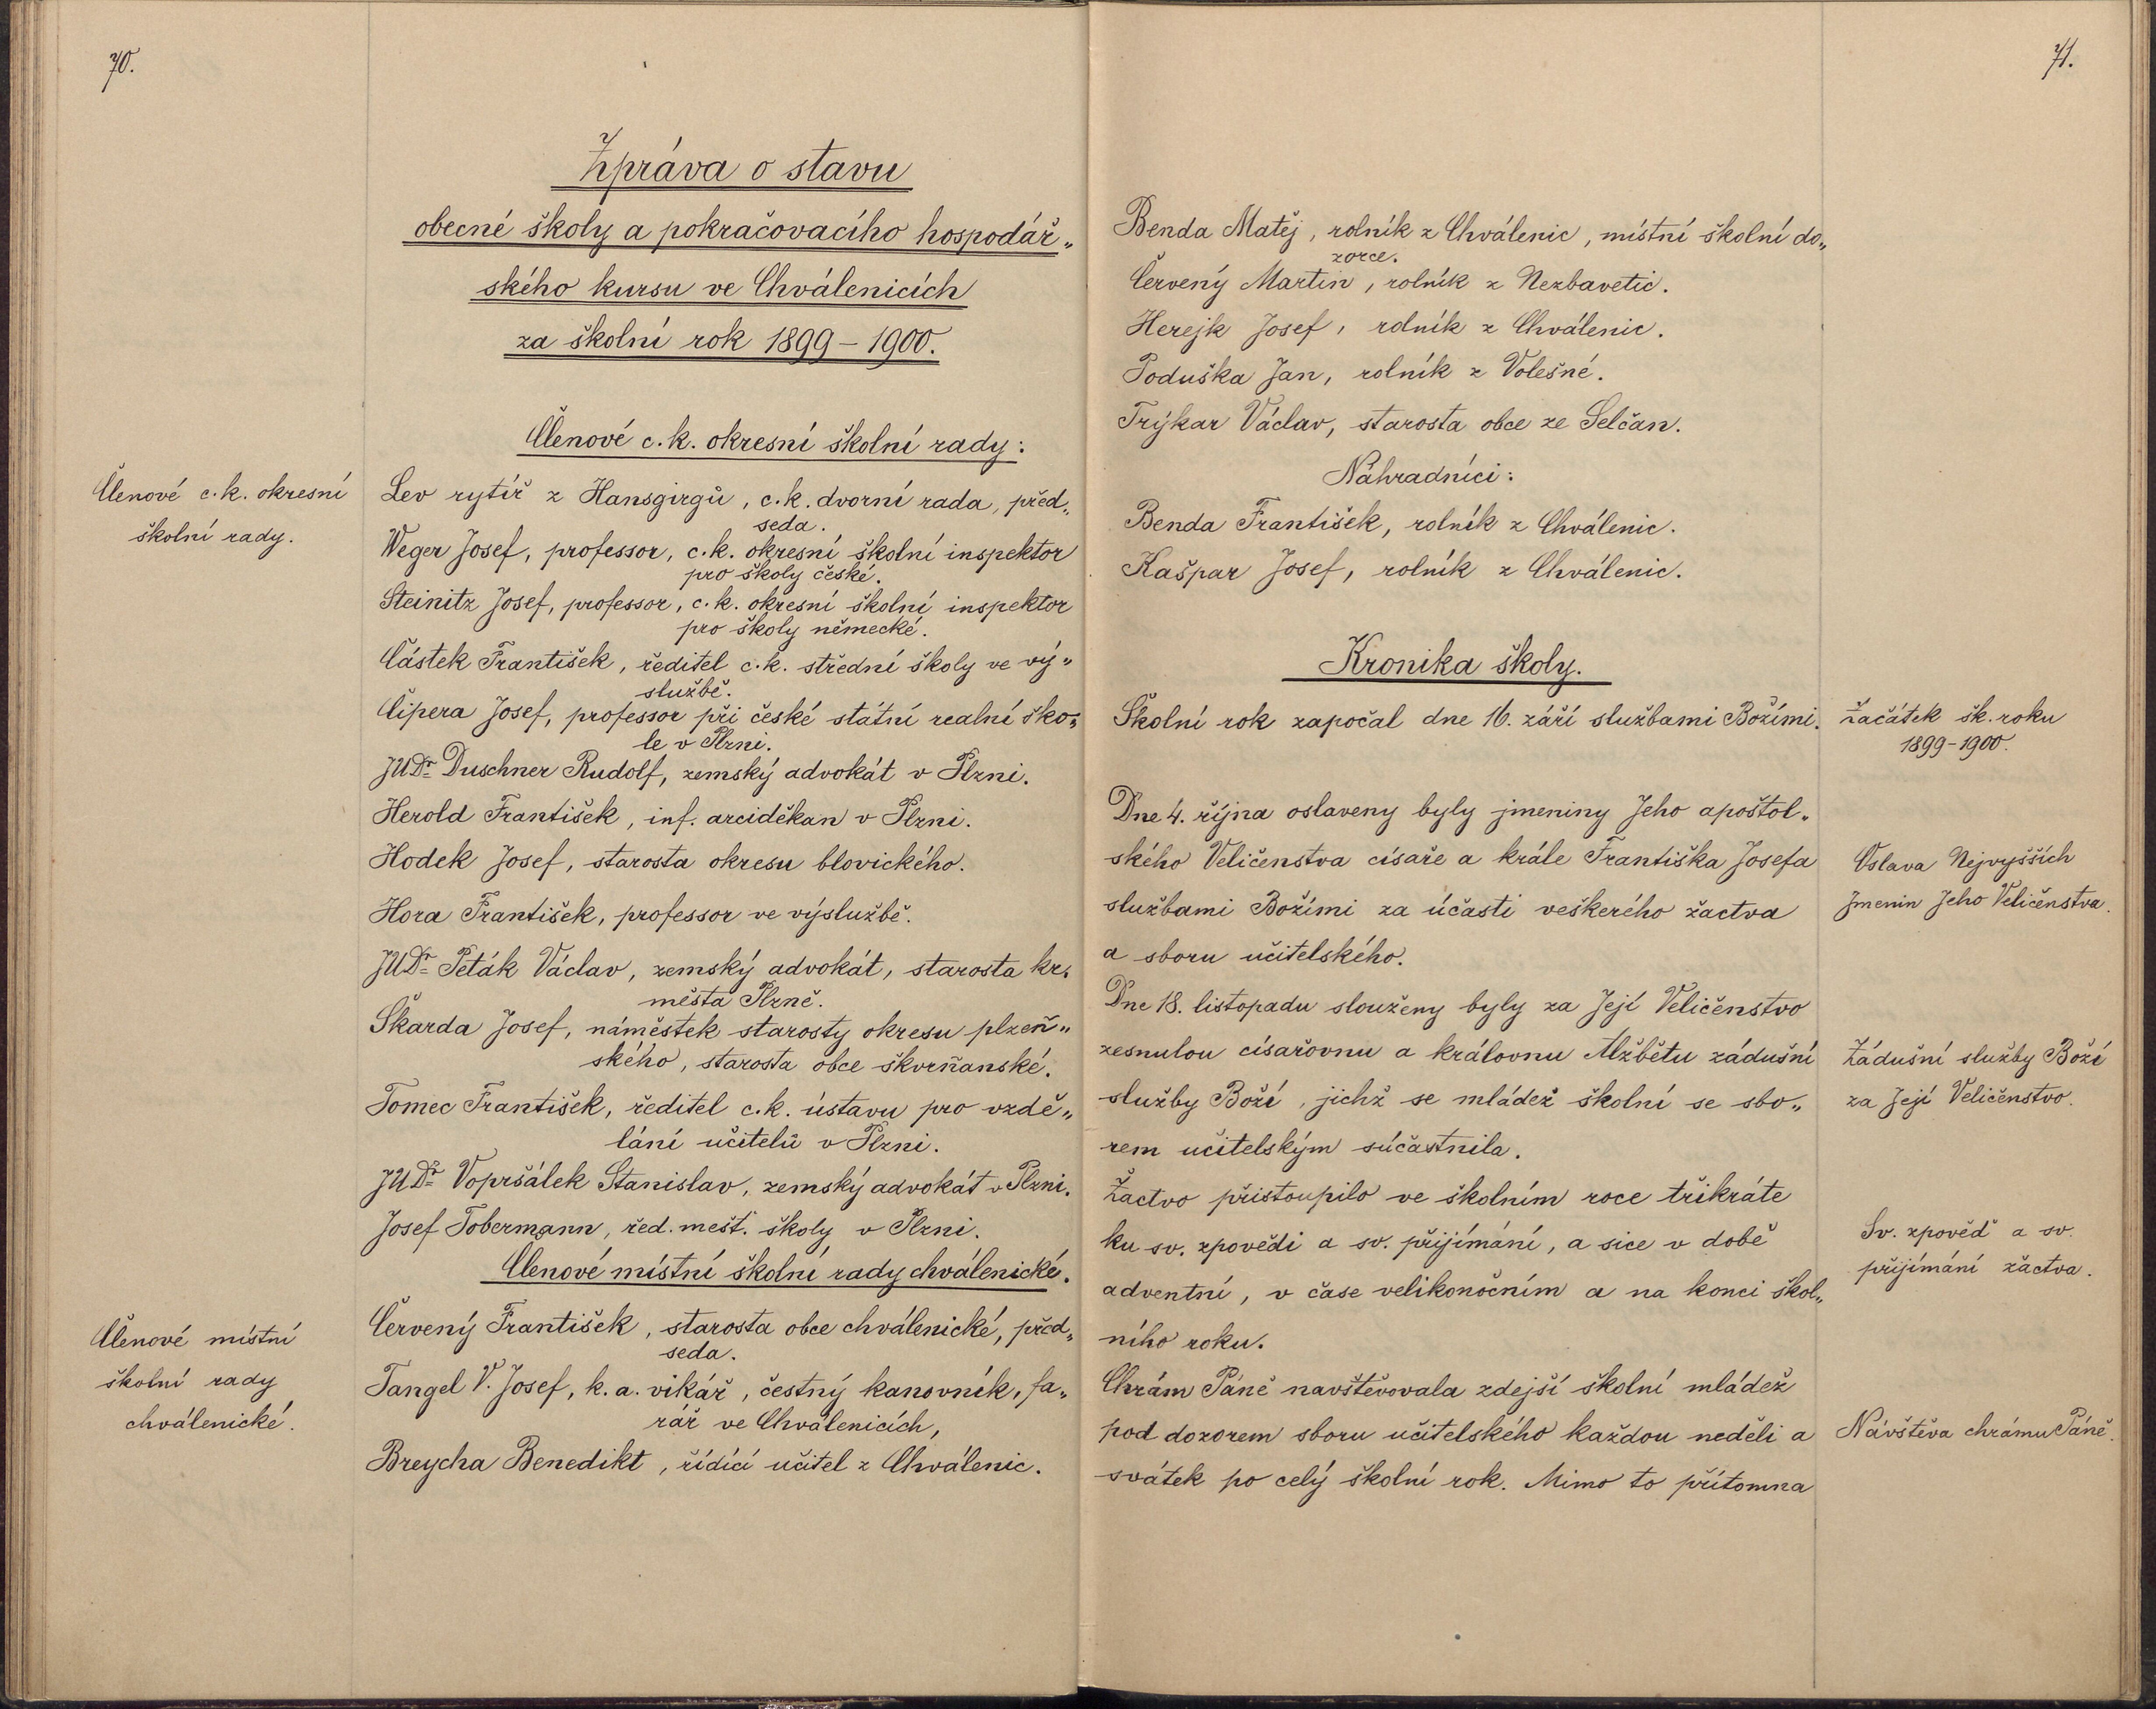 70.
Zpráva o stavu
obecné školy a pokračovacího hospodář„
ského kursu ve Chválenicích
za školní rok 1899 – 1900.
Členové c. k. okresní školní rady:
Členové c. k. okresní
školní rady.
Lev rytíř z Hansgirgů, c. k. dvorní rada, před„
seda.
Weger Josef, professor, c. k. okresní školní inspektor
pro školy české.
Steinitz Josef, professor, c. k. okresní školní inspektor
pro školy německé.
Částek František, ředitel c. k. střední školy ve vý„
službě.
Čipera Josef, professor při české státní realní ško„
le v Plzni.
JUDr Duschner Rudolf, zemský advokát v Plzni.
Herold František, inf. arciděkan v Plzni.
Hodek Josef, starosta okresu blovického.
Hora František, professor ve výslužbě.
JUDr Peták Václav, zemský advokát, starosta kr.
města Plzně.
Škarda Josef, náměstek starosty okresu plzeň„
ského, starosta obce škvrňanské.
Tomec František, ředitel c. k. ústavu pro vzdě„
lání učitelů v Plzni.
JUDr Vopršálek Stanislav, zemský advokát v Plzni.
Josef Tobermann, řed. mešť. školy v Plzni.
Členové místní školní rady chválenické.
Členové místní
školní rady
chválenické.
Červený František, starosta obce chválenické, před„
seda.
Tangel V. Josef, k. a. vikář, čestný kanovník, fa„
rář ve Chválenicích,
Breycha Benedikt, řídící učitel z Chválenic.
71.
Benda Matěj, rolník z Chválenic, místní školní do„
zorce.
Červený Martin, rolník z Nezbavetic.
Herejk Josef, rolník z Chválenic.
Poduška Jan, rolník z Volešné.
Trýkar Václav, starosta obce ze Selčan.
Náhradníci:
Benda František, rolník z Chválenic.
Kašpar Josef, rolník z Chválenic.
Kronika školy.
Školní rok započal dne 16. září službami Božími.
Začátek šk. roku
1899-1900.
Dne 4. října oslaveny byly jmeniny Jeho apoštol„
ského Veličenstva císaře a krále Františka Josefa
službami Božími za účasti veškerého žactva
a sboru učitelského.
Oslava Nejvyšších
Jmenin Jeho Veličenstva.
Dne 18. listopadu slouženy byly za Její Veličenstvo
zesnulou císařovnu a královnu Alžbětu zádušní
služby Boží, jichž se mládež školní se sbo„
rem učitelským súčastnila.
Zádušní služby Boží
za Její Veličenstvo.
Žactvo přistoupilo ve školním roce třikráte
ku sv. zpovědi a sv. přijímání, a sice v době
adventní, v čase velikonočním a na konci škol„
ního roku.
Sv. zpověď a sv.
přijímání žactva.
Chrám Páně navštěvovala zdejší školní mládež
pod dozorem sboru učitelského každou neděli a
svátek po celý školní rok. Mimo to přítomna
Návštěva chrámu Páně.